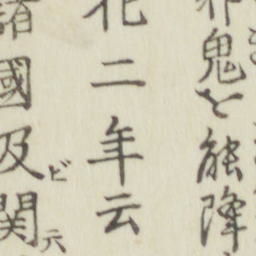 鬼を能降
化二年云
諸國及ビ関